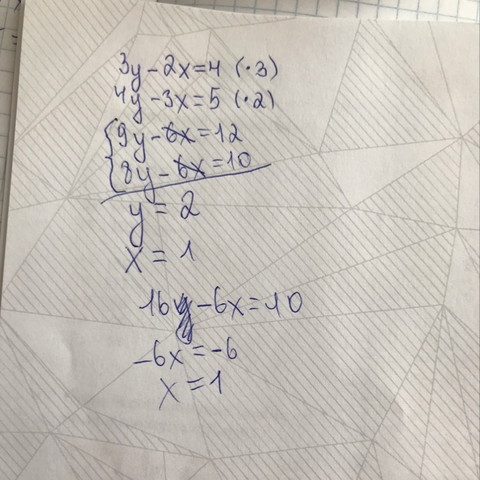 3y-2x=4 (·3)
4y-3x=5 (·2)
9y-6x=12
8y-6x=10
y=2
x=1
16-6x=10
-6x=-6
x=1